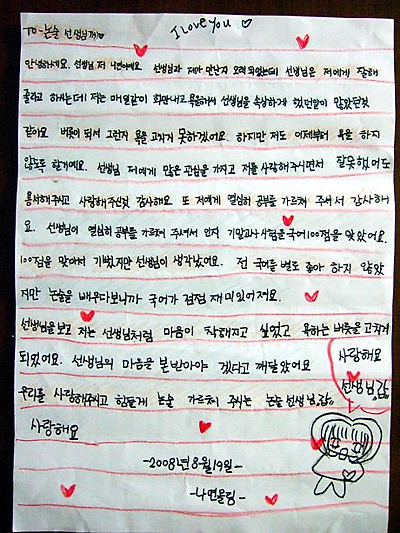 TO-논술 선생님께♡
I Love You ♡
안녕하세요. 선생님 저 나연이에요. 선생님과 제가 만난지 오래되었는데 선생님은 저에게 잘해
줄라고 하시는데 저는 매일같이 화만내고 욕을해서 선생님을 속상하게 했던일이 많았던것
같아요. 버릇이 되서 그런지 욕을 고치지 못하겠어요. 하지만 저도 이제부터 욕을 하지
않도록 할거에요. 선생님 저에게 많은 관심을 가지고 저를 사랑해주시면서 잘못했어도
용서해주시고 사랑해주신것 감사해요. 또 저에게 열심히 공부를 가르쳐 주셔서 감사해
요. 선생님이 열심히 공부를 가르쳐 주셔서 인지 기말고사 시험을 국어100점을 맞았어요.
100점을 맞아서 기뻤지만 선생님이 생각났어요. 전 국어를 별로 좋아 하지 않았
지만 논술을 배우다보니까 국어가 점점 재미있어져요.
선생님을 보고 저는 선생님처럼 마음이 착해지고 싶었고 욕하는 버릇을 고치게
되었어요. 선생님의 마음을 본받아야 겠다고 깨달았어요
우리를 사랑해주시고 힘들게 논술 가르쳐 주시는 논술 선생님
사랑해요
사랑해요
선생님
-2008년 8월 19일-
-나연올림-